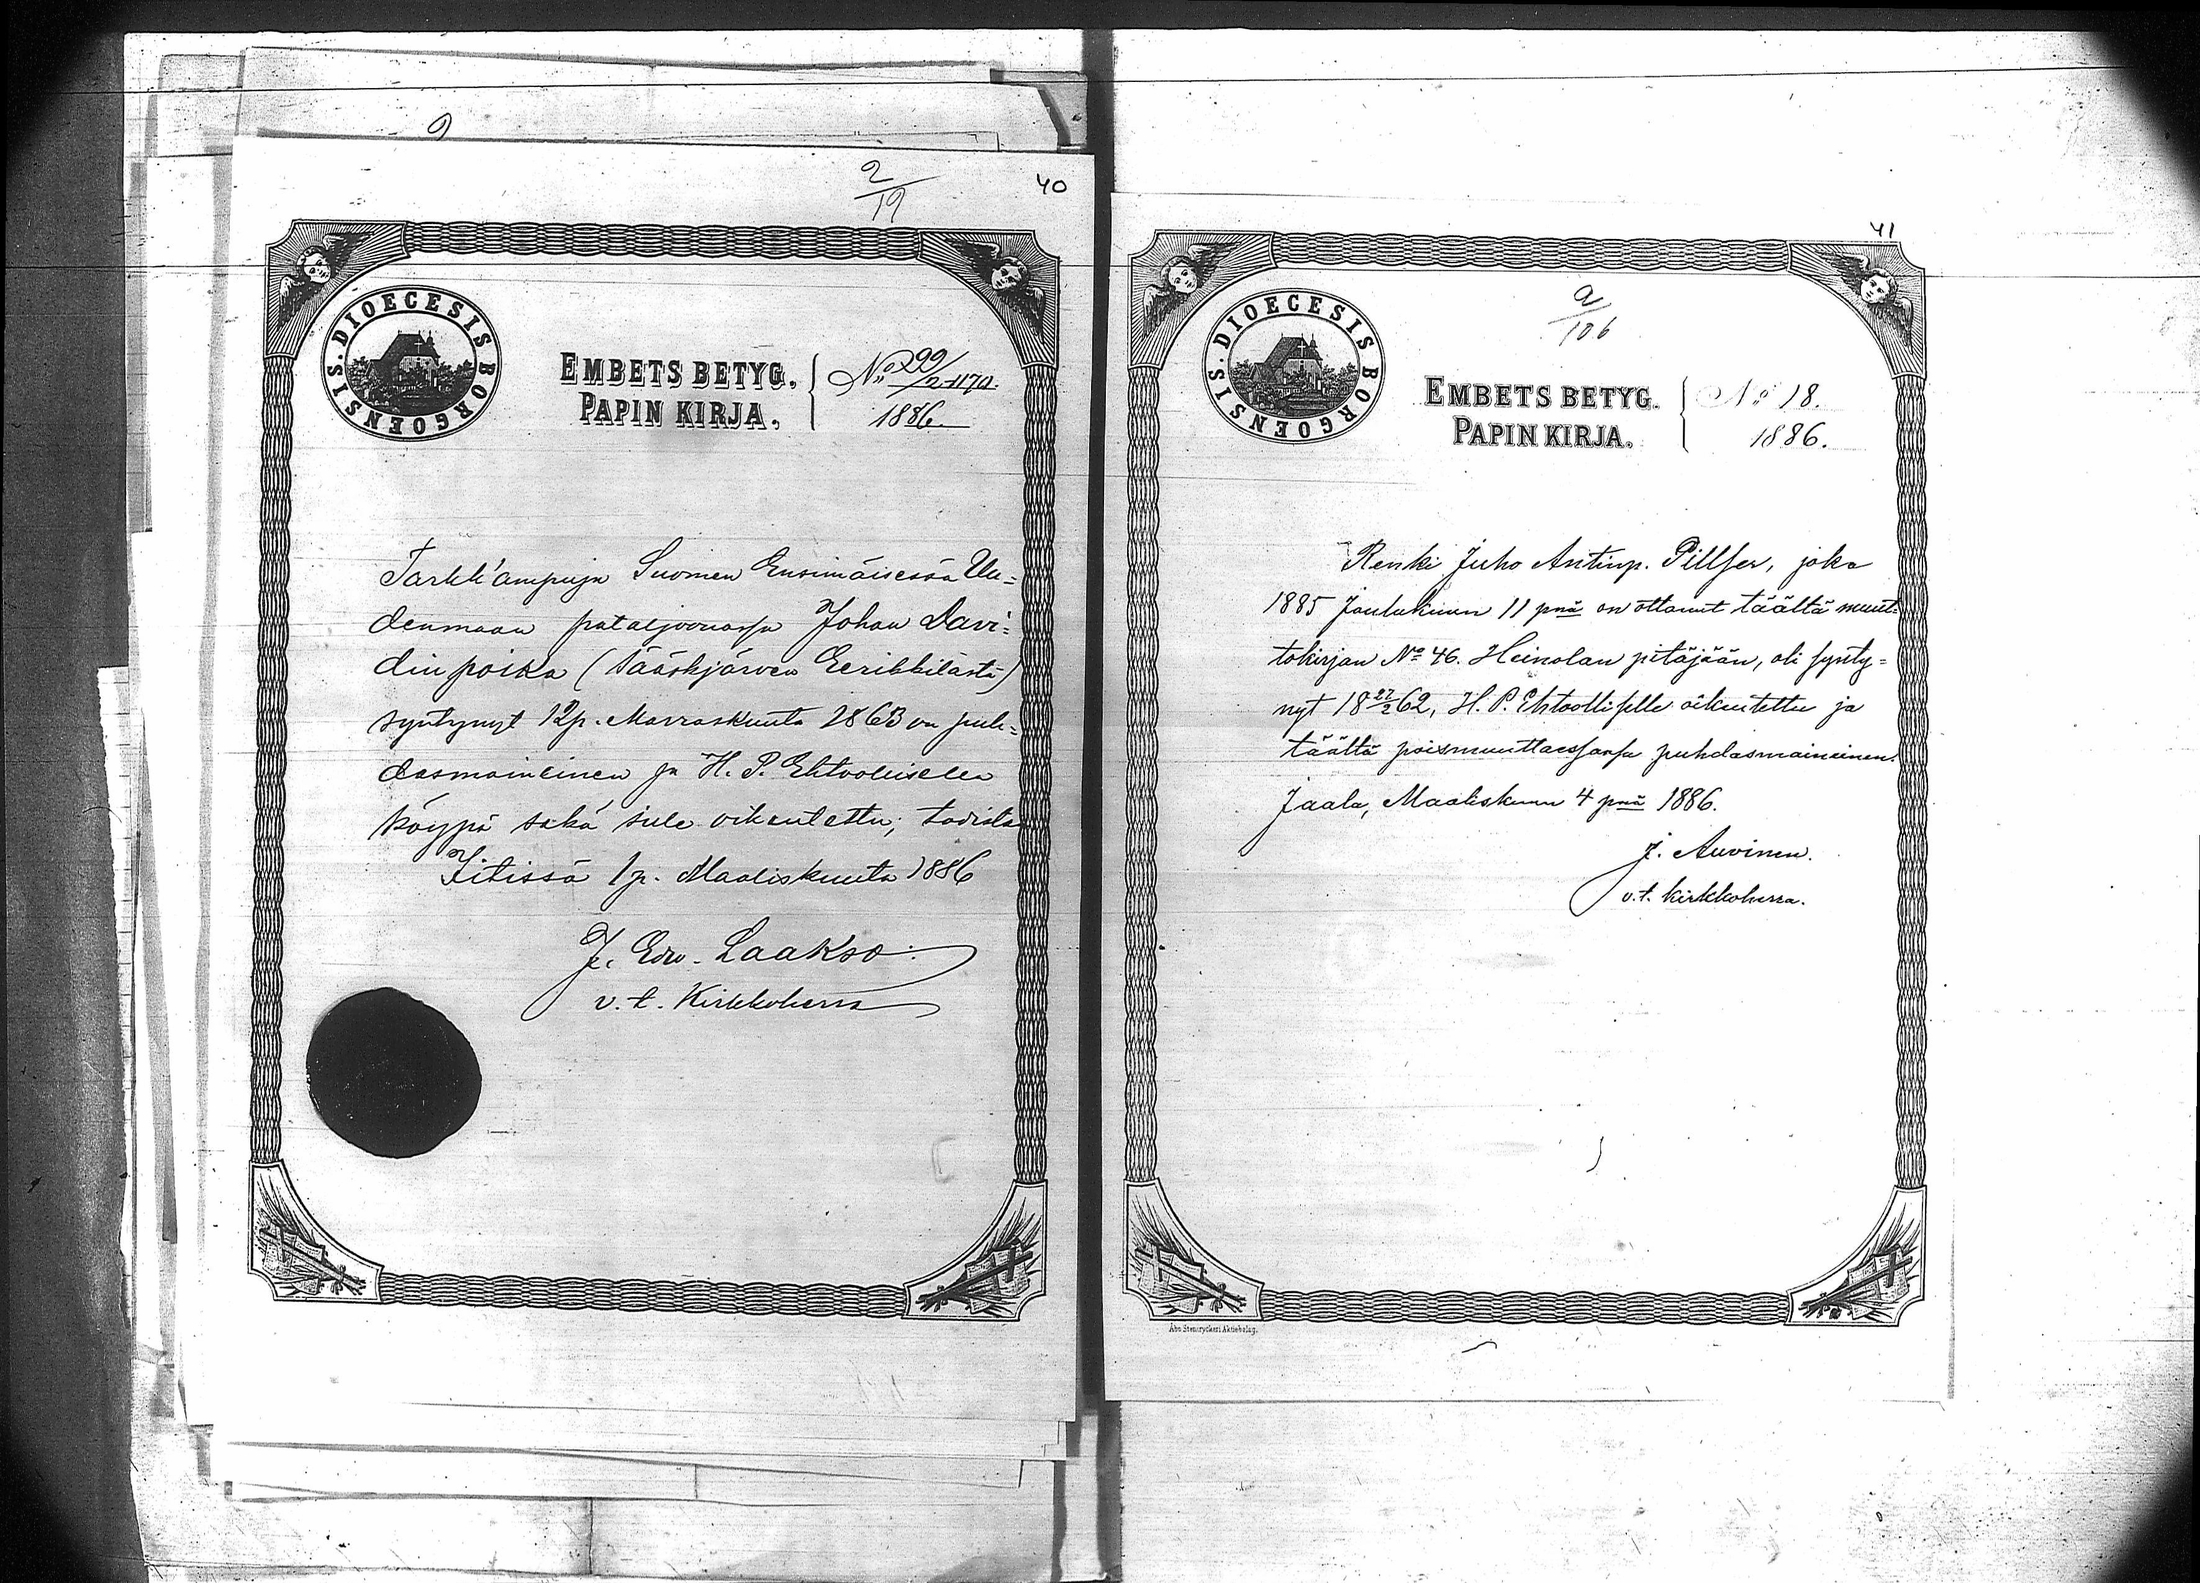 9
2/19
40
DIOECESIS BORGOENSIS.
EMBETS BETYG.
PAPIN KIRJA.
1886.
Tark'ampuja Suomen Ensimäisessä Uu=
denmaan pataljoonassa Johan Davi=
dinpoika (Sääskjärven Eerikkilästä)
syntynyt 12p. Marraskuuta 1863 on puh=
dasmaineinen ja H. P. Ehtoolliselle
käypä sekä sille oikeutettu; todista
Iitissä 1 p. Maaliskuuta 1886
J. Edv. Laakso.
v. t. Kirkkoherra
41
a/106
DIOECESIS BORGOENSIS.
EMBETS BETYG.
PAPIN KIRJA.
No 18.
1886.
Renki Juho Antinp. Pillser, joka
1885 Joulukuun 11 pnä on ottanut täältä muut=
tokirjan No 46. Heinolan pitäjään, oli synty=
nyt 18 27/2 62, H. P. Ehtoolliselle oikeutettu ja
täältä poismuuttaessansa puhdasmaineinen.
Jaala, Maaliskuun 4 pnä 1886.
J. Auvinen.
v. t. kirkkoherra.
Åbo Stentryckeri Aktiebolag.